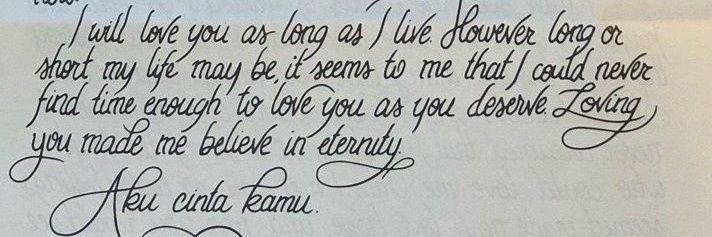 I will love you as long as I live. However long or
short my life may be, it seems to me that I could never
find time enough to love you as you deserve. Loving
you made me believe in eternity.
Aku cinta kamu.